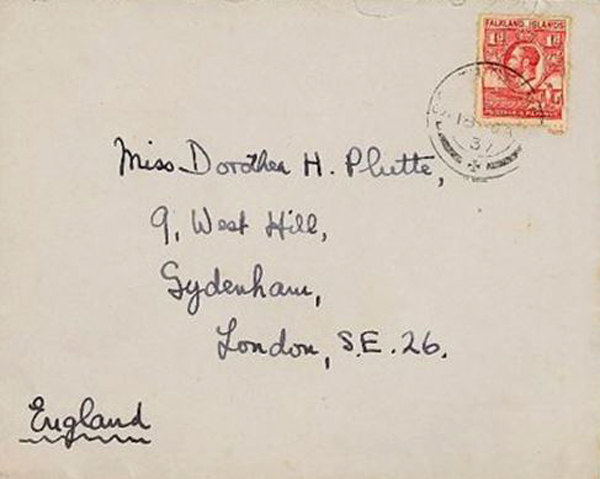 FALKLAND ISLANDS
1D 1D
POSTAGE & REVENUE
37
Miss Dorothea H. Plutte,
9, West Hill,
Sydenham,
London, S.E. 26.
England